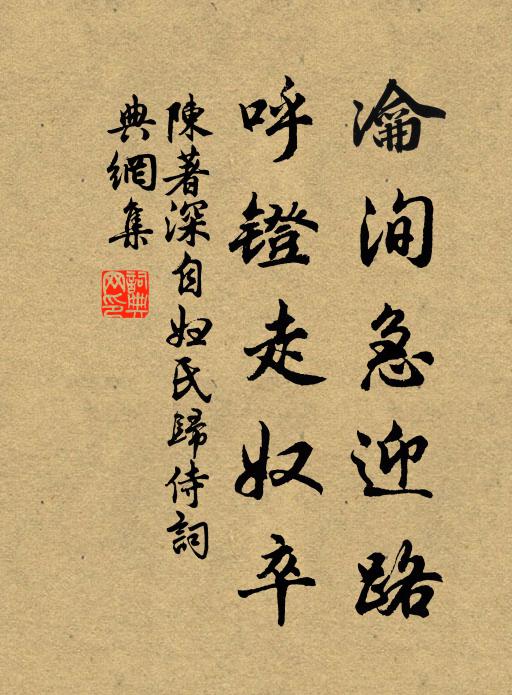 瀹洵急迎路
呼鐙走奴卒
陳著深自妞氏歸侍詞
典網集
詞典網印